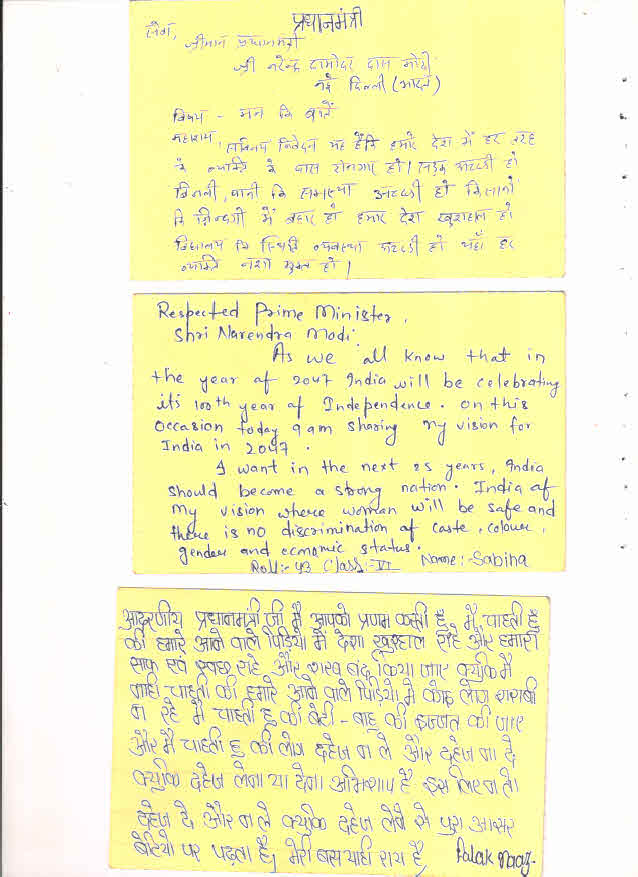 प्रधानमंत्री
सेवा,
श्रीमान प्रधानमंत्री
श्री नरेन्द्र दामोदर दास मोदी
नई दिल्ली (भारत)
विषय - मन कि बातें
महाशय,
सविनय निवेदन यह हैंकि हमारे देश में हर तरह
के व्यक्ति के पास रोजगार हो। सड़क अच्छी हो
बिजली, पानी कि समस्या अच्छी हो किसानों
कि जिन्दगी में बहार हो हमारे देश खुशहाल हो
विद्यालय कि स्थिति व्यवस्था अच्छी हो यहाँ हर
व्यक्ति नशा मुक्त हो।
Respected Prime Minister,
Shri Narendra Modi
As we all know that in
the year of 2047 India will be celebrating
its 100th year of Independence. on this
occasion today I am sharing my vision for
India in 2047.
I want in the next 25 years, India
should become a strong nation. India of
my vision where woman will be safe and
there is no discrimination of caste, colour,
gender and economic status.
Roll:- 43 Class:- VI Name:- Sabina
आदरणीय प्रधानमंत्री जी मै आपको प्रणाम करती हु, मै चाहती हु
की हमारे आने वाले पिड़ियो में देश खुशहाल रहे और हमारी
साफ एवं स्वछ राहे और शराब बंद किया जाए क्युकि मै
नाही चाहती की हमारे आने वाले पिड़ियो मे कोइ लोग शराबी
न रहे मै चाहती हु की बेटी - बाहु की इज्जत की जाए
और मै चाहती हु की लोग दहेज न ले और दहेज ना दे
क्युकि दहेज लेना या देना अभिशाप है इस लिए न तो
दहेज दे और न ले क्युकि दहेज लेने से पुरा आसर
बेटियो पर पढ़ता है, मेरी बस याही राय है Palak Naaz.